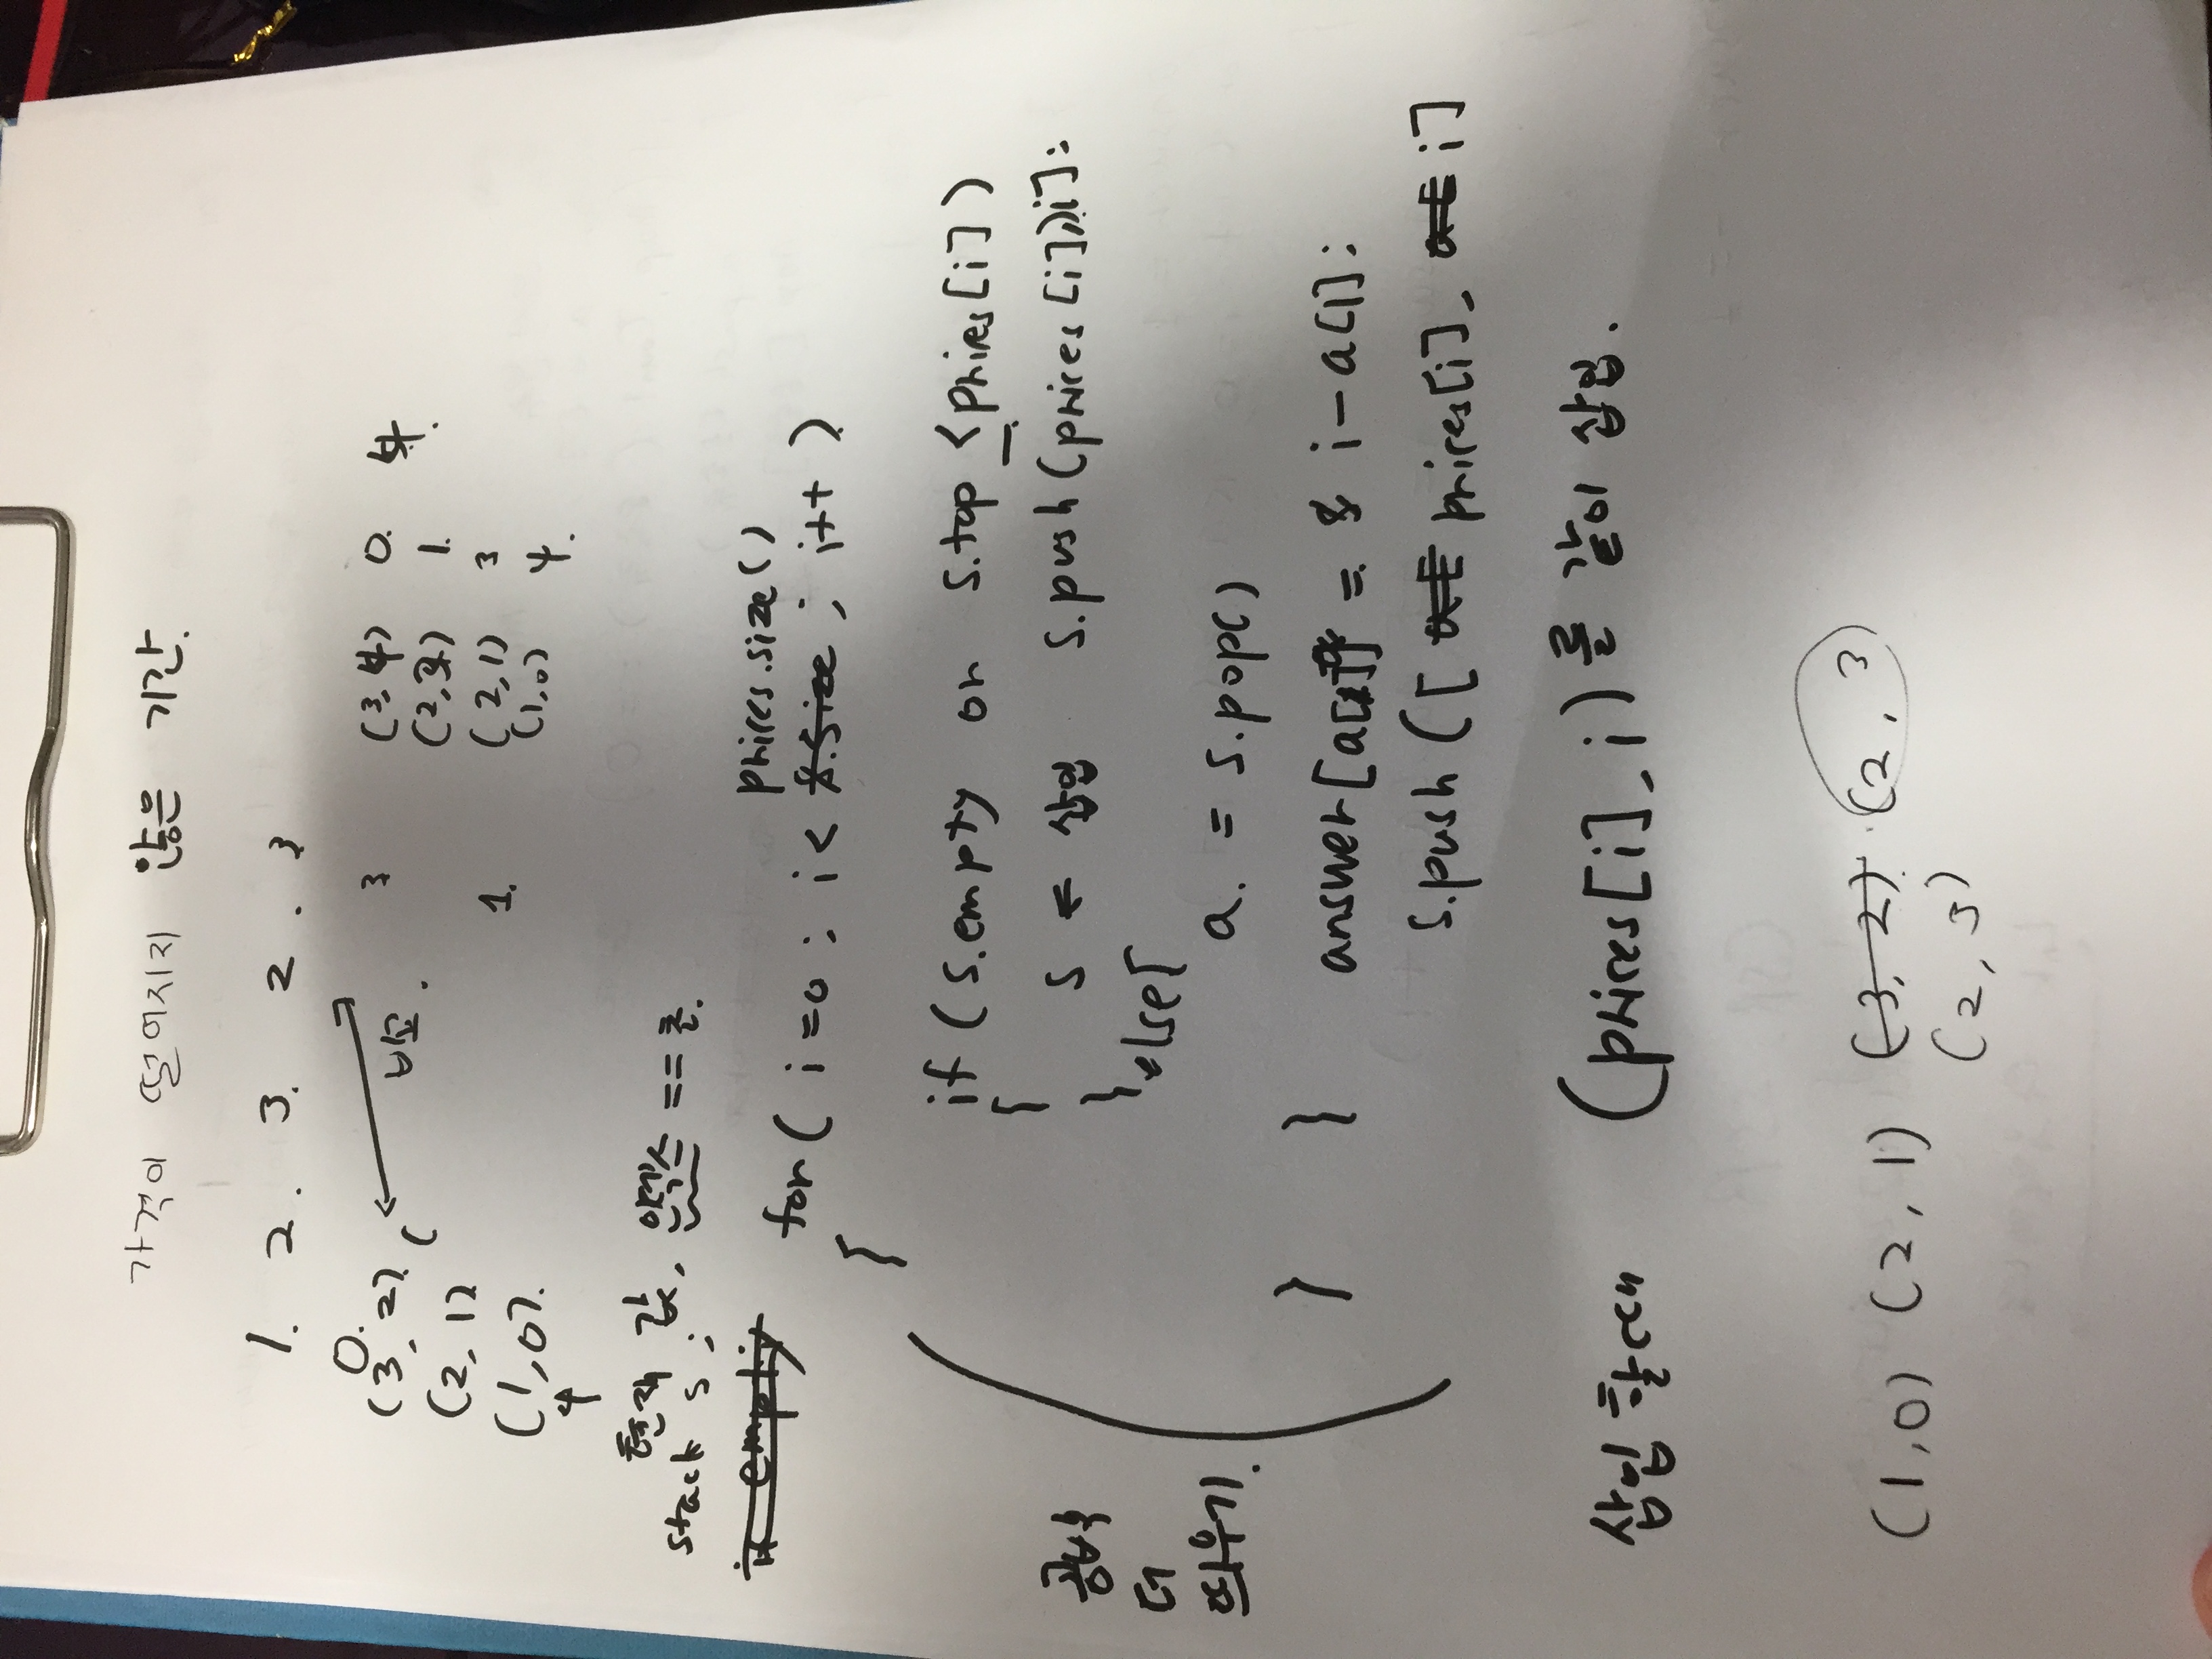 가격이 떨어지지 않은 기간.
1. 2. 3. 2. 3
0.
(3, 2). (
비교.
(2, 1)
(1, 0).
4
3 (3, 4) 0. 4.
(2, 3) 1.
1. (2, 1) 3
(1, 0) 4.
현재 값, 인덱스 == 초.
stack s ;
is empty
prices.size()
for ( i=0 ; i< s.size ; i++ )
{
if ( s.empty or s.top ≤ prices[i] )
{
s ← 삽입 s.push (prices [i]), i] ;
} else {
a. = s.pop()
} } answer[a[1]] = i - a[1] ;
s.push ([ prices[i], i]
공백
더
띄우기.
삽입 할때 (prices[i], i)를 같이 삽입.
(1,0) (2, 1) (3, 2). (2, 3
(2, 3)